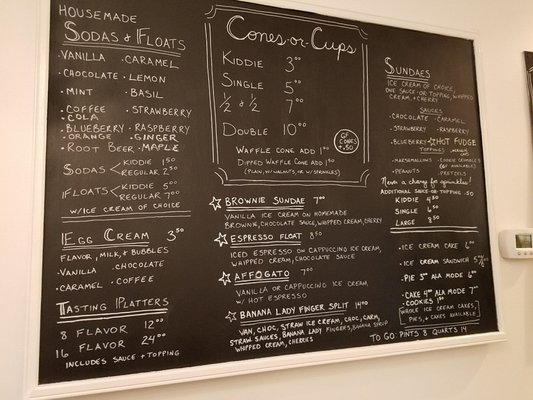 HOUSEMADE
SODAS & FLOATS
VANILLA · CARAMEL
CHOCOLATE · LEMON
MINT · BASIL
COFFEE · STRAWBERRY
COLA
BLUEBERRY · RASPBERRY
ORANGE · GINGER
ROOT BEER · MAPLE
SODAS KIDDIE 1.50
REGULAR 2.50
FLOATS KIDDIE 5.00
REGULAR 7.00
W/ICE CREAM OF CHOICE
EGG CREAM 3.50
FLAVOR, MILK, & BUBBLES
VANILLA · CHOCOLATE
CARAMEL · COFFEE
TASTING PLATTERS
8 FLAVOR 12.00
16 FLAVOR 24.00
INCLUDES SAUCE + TOPPING
CONES·OR·CUPS
KIDDIE 3.00
SINGLE 5.00
1/2 & 1/2 7.00
DOUBLE 10.00
GF CONES +.50
WAFFLE CONE ADD 1.00
DIPPED WAFFLE CONE ADD 1.50
(PLAIN, W/WALNUTS, OR W/SPRINKLES)
BROWNIE SUNDAE 7.00
VANILLA ICE CREAM ON HOMEMADE
BROWNIE, CHOCOLATE SAUCE, WHIPPED CREAM, CHERRY
ESPRESSO FLOAT 8.50
ICED ESPRESSO ON CAPPUCCINO ICE CREAM,
WHIPPED CREAM, CHOCOLATE SAUCE
AFFOGATO 7.00
VANILLA OR CAPPUCCINO ICE CREAM,
W/ HOT ESPRESSO
BANANA LADY FINGER SPLIT 14.00
VAN, CHOC, STRAW ICE CREAM, CHOC, CARM,
STRAW SAUCES, BANANA LADY FINGERS, BANANA SYRUP
WHIPPED CREAM, CHERRIES
SUNDAES
ICE CREAM OF CHOICE,
ONE SAUCE OR TOPPING, WHIPPED
CREAM, + CHERRY
SAUCES
CHOCOLATE · CARAMEL
STRAWBERRY · RASPBERRY
BLUEBERRY HOT FUDGE
TOPPINGS
MARSHMALLOWS · COOKIE CRUMBLES
PEANUTS · PRETZELS
Never a charge for sprinkles!
ADDITIONAL SAUCE OR TOPPING .50
KIDDIE 4.50
SINGLE 6.50
LARGE 8.50
ICE CREAM CAKE 6.00
ICE CREAM SANDWICH
PIE À LA MODE 6.00
CAKE À LA MODE 7.00
COOKIES 1.00
WHOLE ICE CREAM CAKES,
PIES, + CAKES AVAILABLE
TO GO: PINTS 8 QUARTS 14